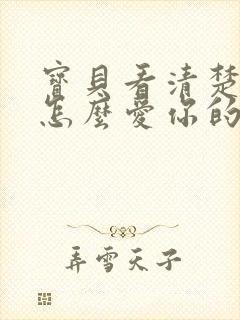 寶貝看清楚
怎麼愛你的
弄雪天子